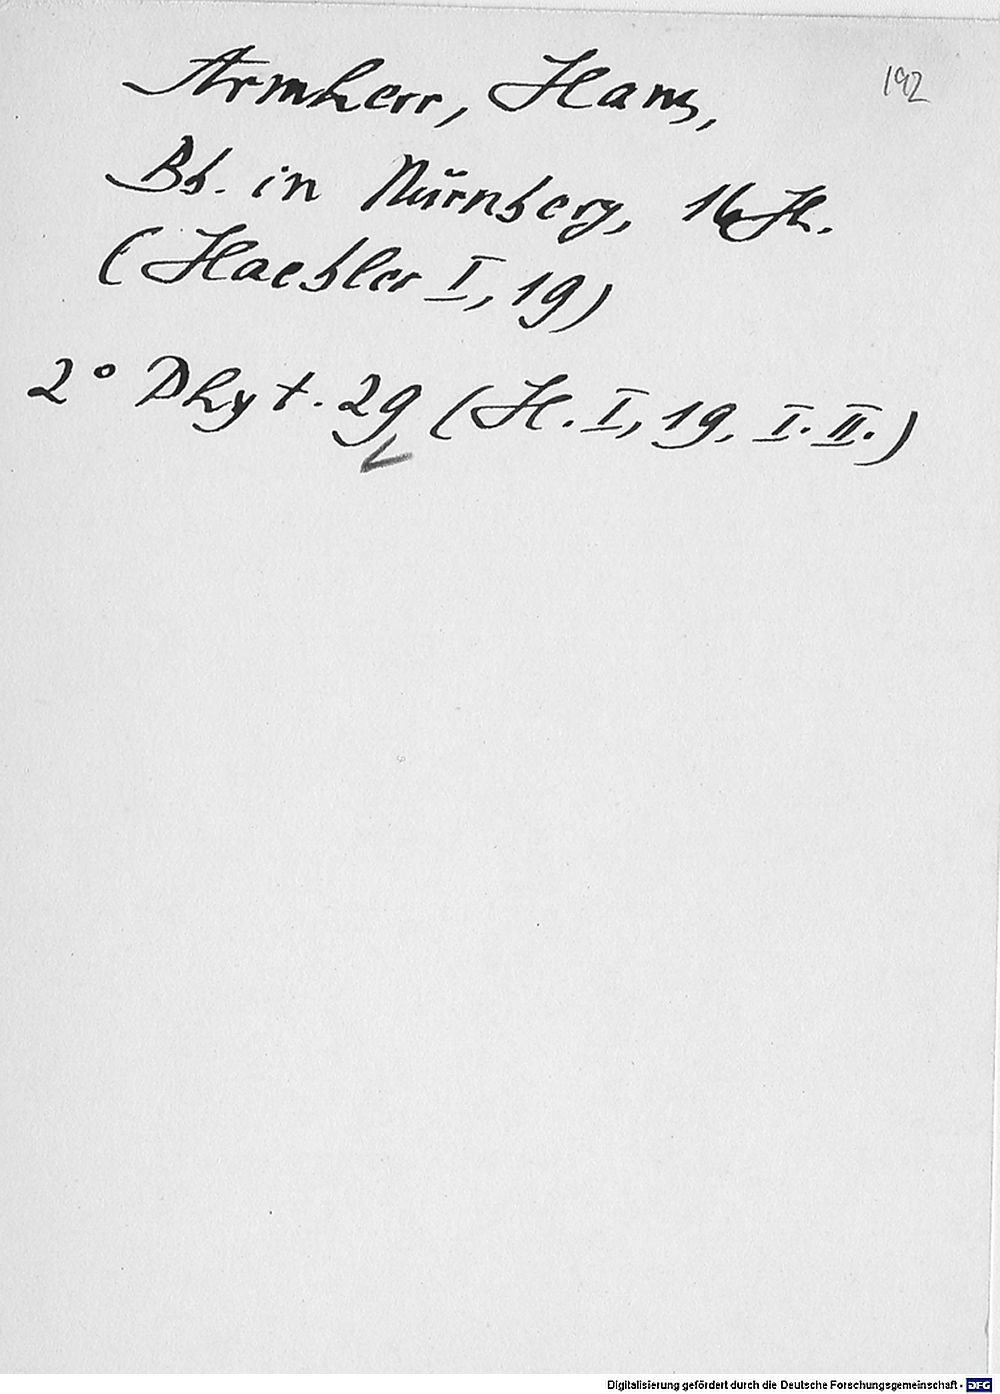 192
Armherr, Hans,
Bb. in Nürnberg, 16. Jh.
(Haebler I, 19)
2° Phyt. 29 (H. I, 19, I. II.)
Digitalisierung gefördert durch die Deutsche Forschungsgemeinschaft - DFG